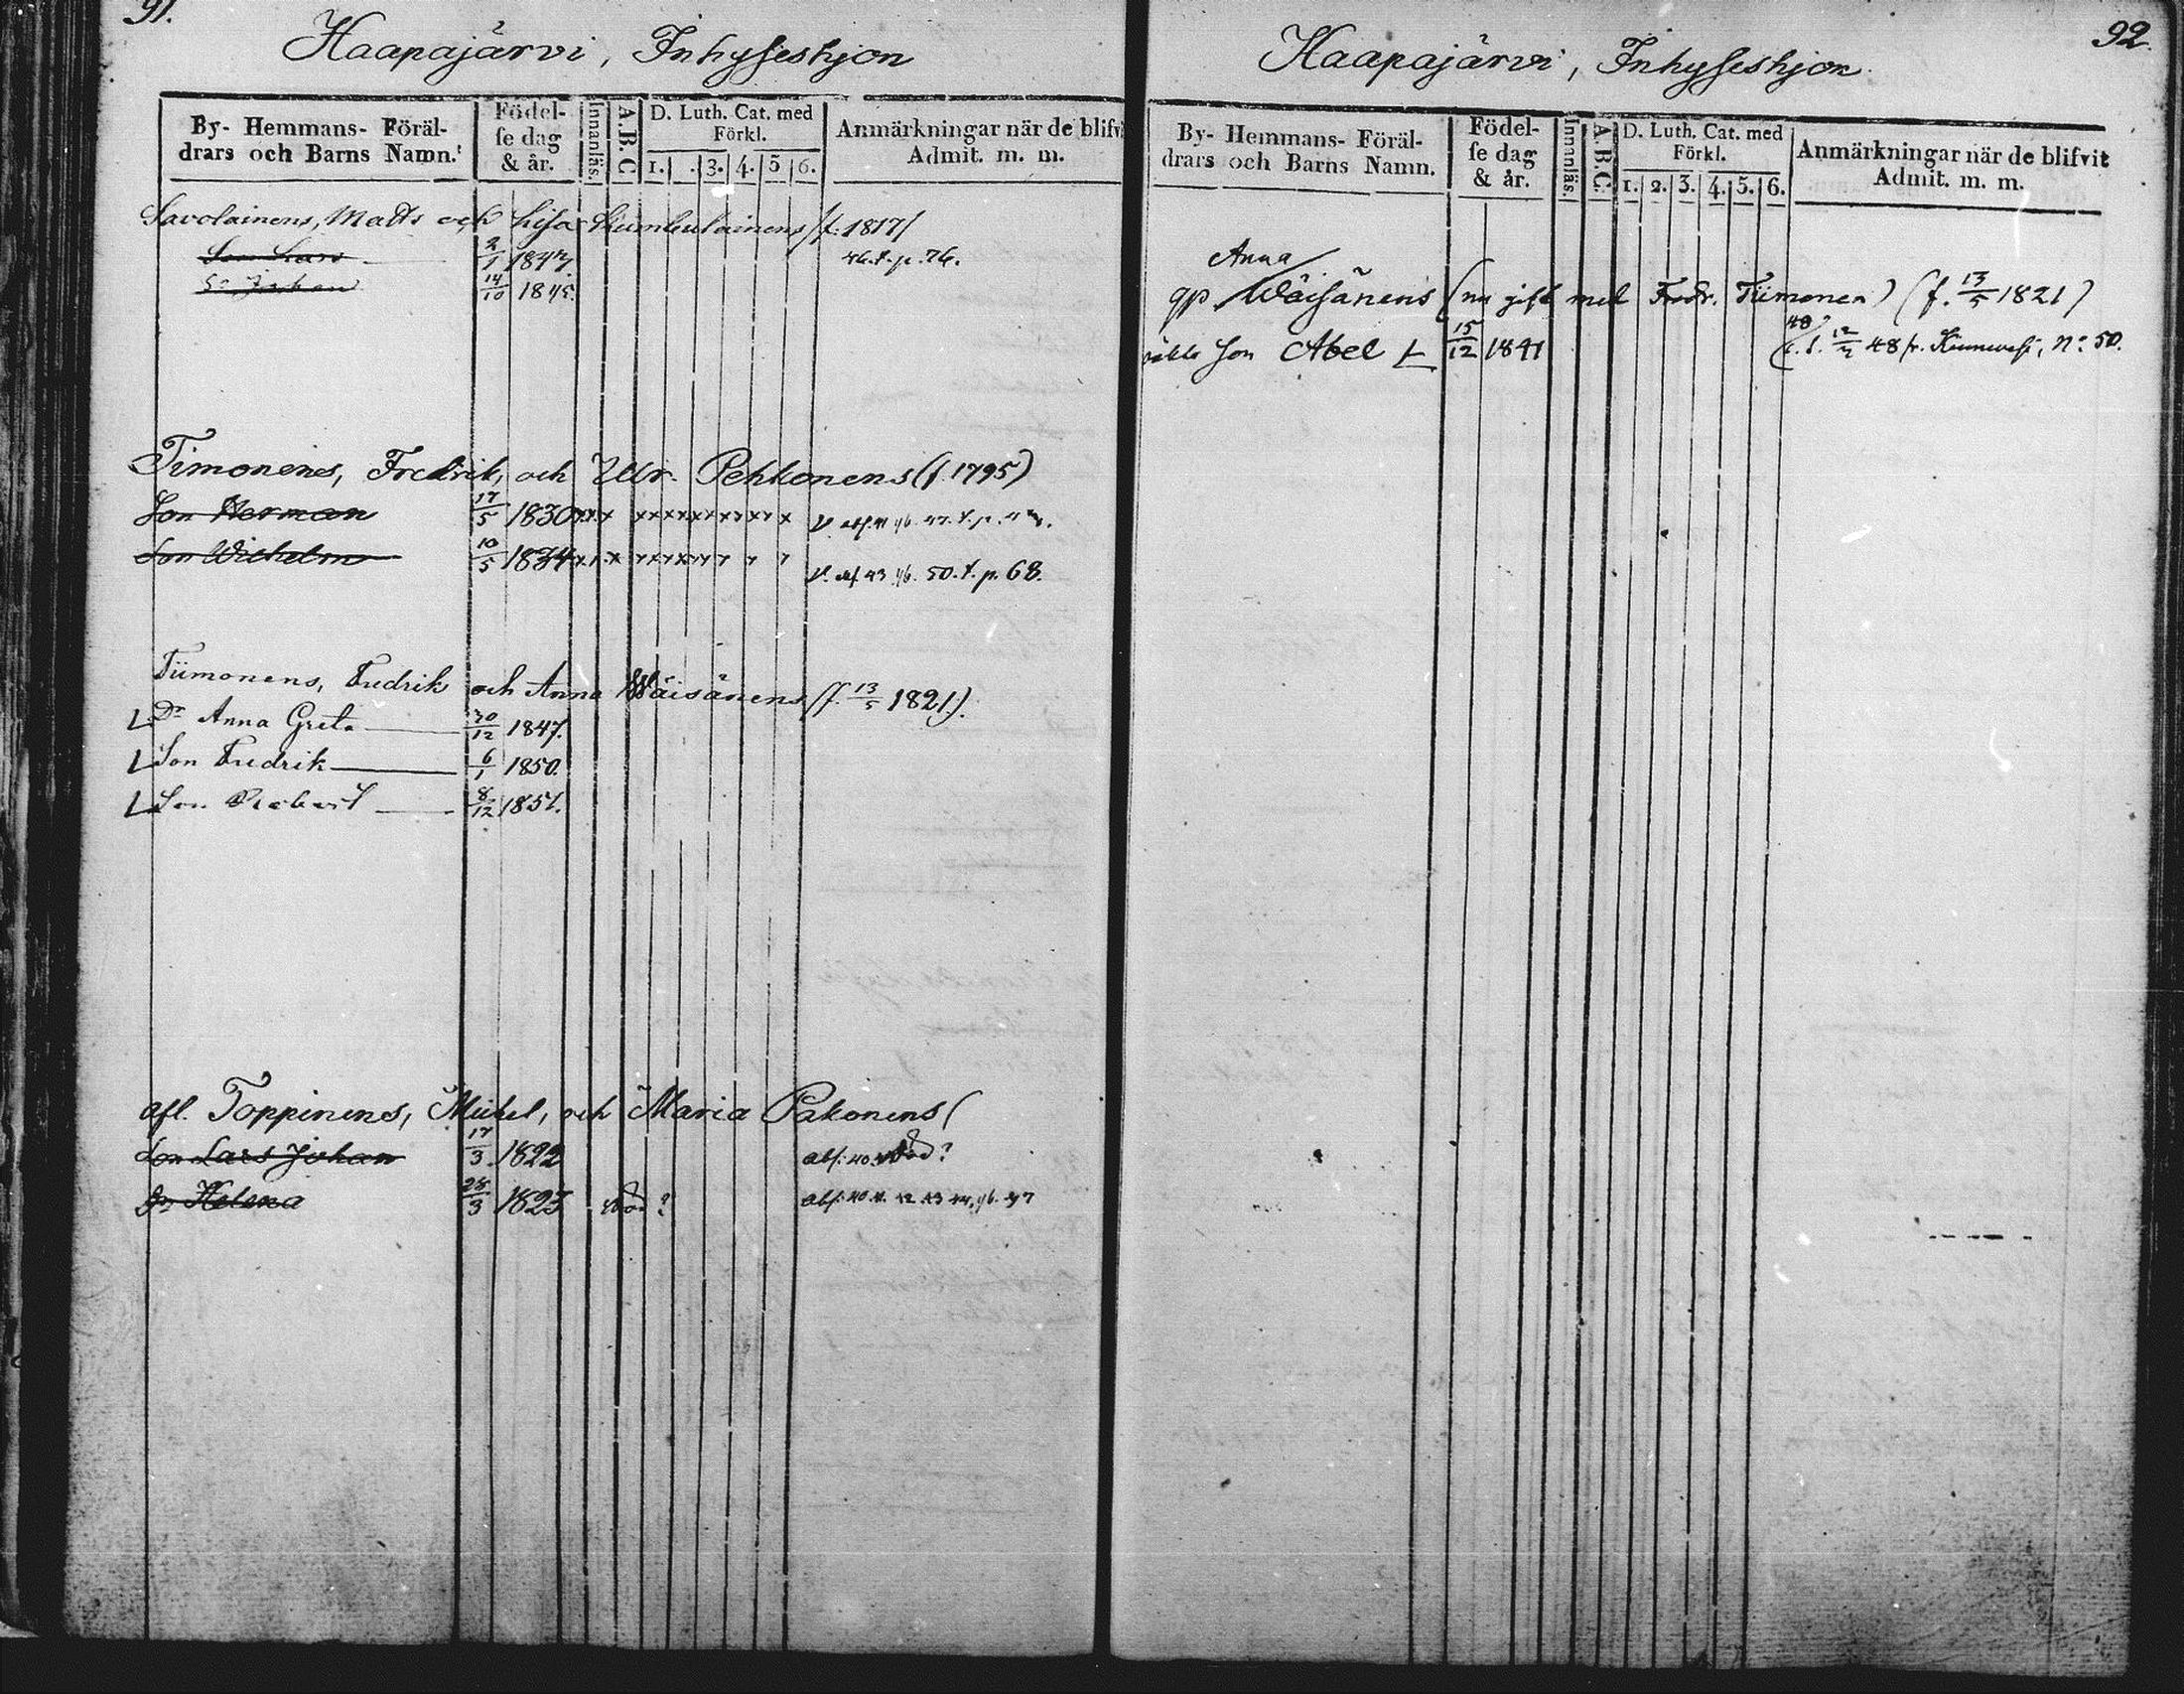 91.
Haapajärvi, Inhyseshjon
By- Hemmans- Föräl-
drars och Barns Namn.
Födel-
se dag
& år.
Innanläs.
A.B.C
D. Luth. Cat. med
Förkl.
1. 3. 4. 5 6.
Anmärkningar när de blifvit
Admit. m. m.
Savolainens, Matts och Lisa /f. 1817/
Son Lars 2/1 1847. 46. f. p. 76.
Sn Johan 14/10 1845.
Timonens, Fredrik, och Ulr. Pehkonens (f. 1795)
Son Herman 17/5 1830 xxx xxxxxxxxxx x
Son Wilhelm 10/5 1834 x x x xxxxxxx x x V. abs. 43. 46. 50. f. p. 68.
Tiimonens, Fredrik och Anna Wäisänens (f. 13/5 1821.).
Dr Anna Greta 30/12 1847.
Son Fredrik 6/1 1850.
Son 8/12 1851.
afl. Toppinens, Mickel, och Maria Pakonens (
Son Lars Johan 17/3 1822 abs: 40. död?
Dr Helena 28/3 1823 död? abs: 40 41. 42 43 44, 46. 47
92.
Haapajärvi, Inhyseshjon
By- Hemmans- Föräl-
drars och Barns Namn.
Födel-
se dag
& år.
Innanläs.
A.B.C.
D. Luth. Cat. med
Förkl.
1. 2. 3. 4. 5. 6.
Anmärkningar när de blifvit
Admit. m. m.
Anna
qp. Wäisänens (nu gift med Fredr. Tiimonen) (f. 13/5 1821)
oäkta son Abel 15/12 1841 48 fr. No: 50.